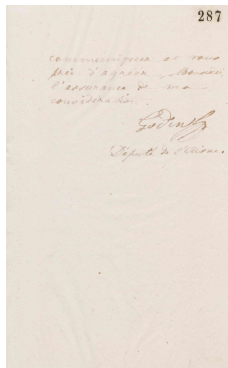 287
communiquer et vous
prie d'agréer, Monsieur
l'assurance de ma
considération.
Godin
Député de l'Aisne.